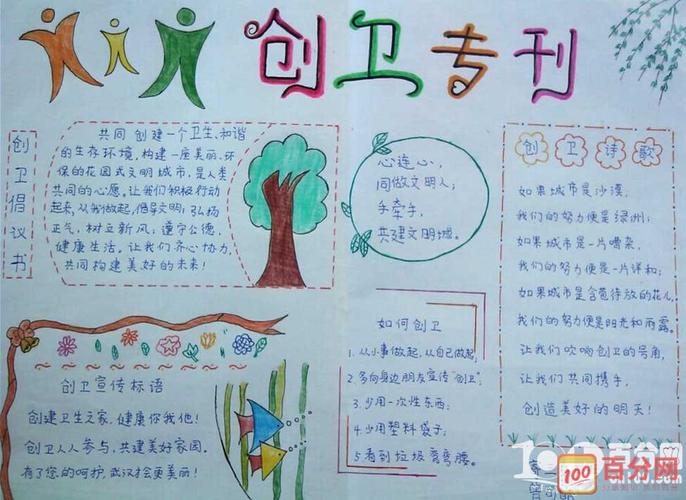 创卫专刊
创卫倡议书
共同创建一个卫生、和谐
的生存环境,构建一座美丽、环
保的花园式文明城市,是人类
共同的心愿,让我们积极行动
起来,从我做起,倡导文明;弘扬
正气,树立新风,遵守公德,
健康生活。让我们齐心协力,
共同构建美好的未来!
心连心,
同做文明人;
手牵手,
共建文明城。
创卫诗歌
如果城市是沙漠,
我们的努力便是绿洲;
如果城市是一片嘈杂,
我们的努力便是一片详和;
如果城市是含苞待放的花儿,
我们的努力便是阳光和雨露。
让我们吹响创卫的号角,
让我们共同携手,
创造美好的明天!
创卫宣传标语
创建卫生之家,健康你我他!
创卫人人参与,共建美好家园。
有了您的呵护,武汉才会更美丽!
如何创卫
1.从小事做起,从自己做起,
2.多向身边朋友宣传"创卫";
3.少用一次性东西;
4.少用塑料袋子;
5.看到垃圾弯弯腰。
100
百分网